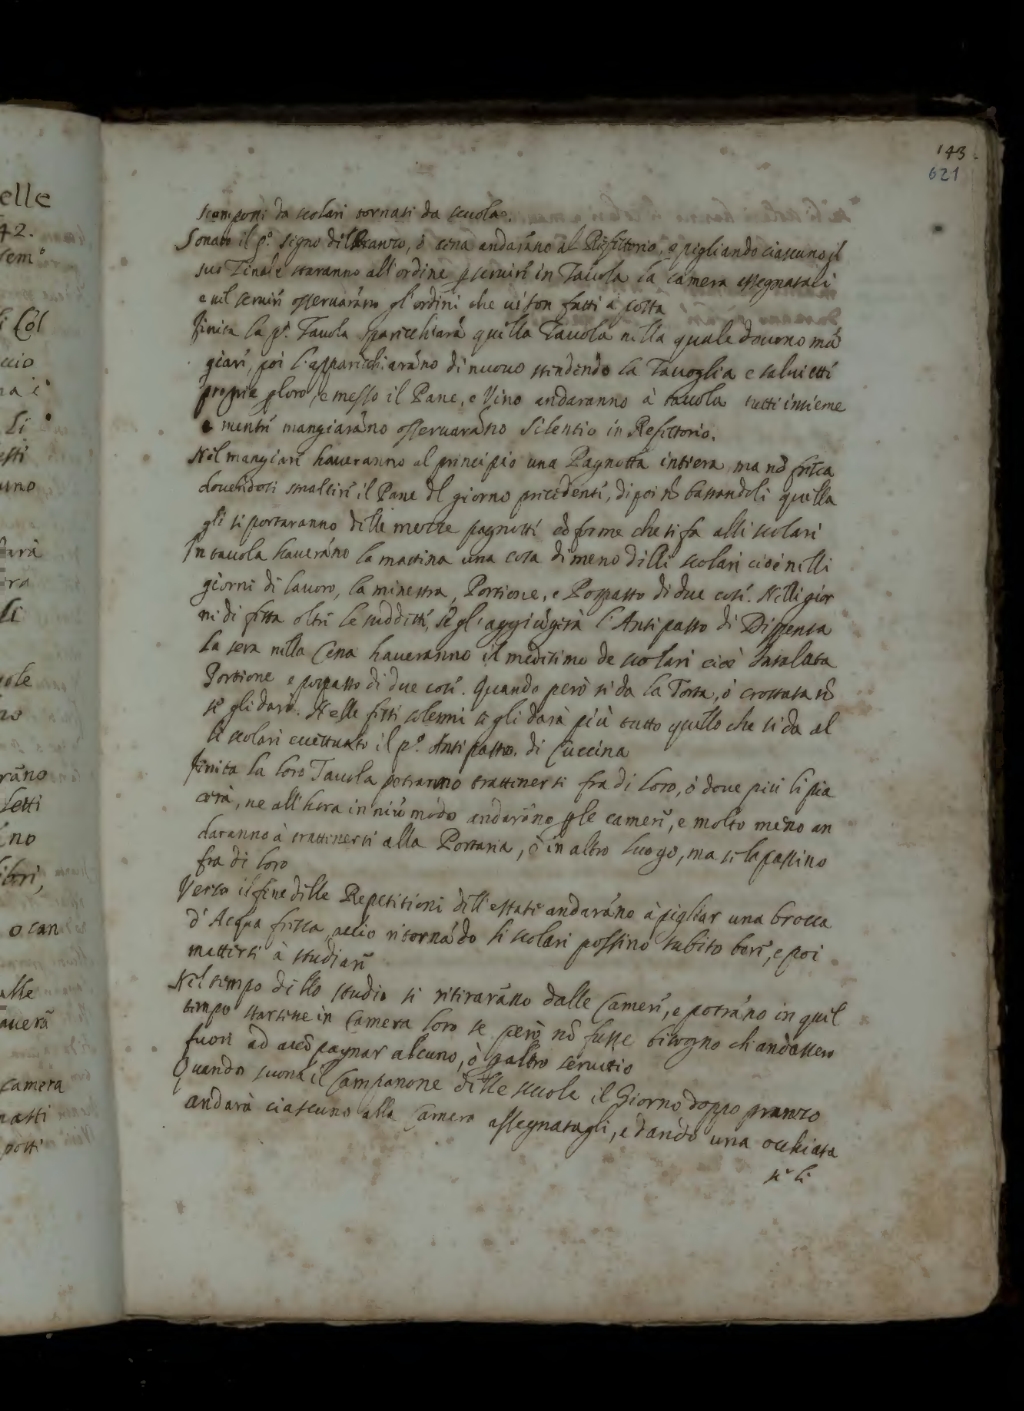 143
621
scomposti da scolari tornati da scuola.
Sonato il p.º segno del Pranzo, ò cena andaràno al Refettorio, e pigliando ciascuno il
suo Zinale staranno all'ordine p servire in Tavola la camera assegnatali
e nel servire osservaràno gl'ordini che vi son fatti à posta
finita la p.ª Tavola sparecchiarà quella Tavola nella quale devono mã
giare, poi l'apparecchiaràno di nuovo stendendo la Tavoglia e salviette
proprie p loro, e messo il Pane, e Vino andaranno à tavola tutti insieme
e mentre mangiaràno osservaràno Silentio in Refettorio.
Nel mangiare haveranno al principio una Pagnotta intiera, ma nõ fresca
dovendosi smaltire il Pane del giorno precedente, di poi nõ bastandoli quella
gli si portaranno delle mezze pagnotte cõforme che si fa alli scolari
In tavola haveràno la mattina una cosa di meno delli scolari cioè nelli
giorni di lavoro, la minestra, Portione, e Pospasto di due cose. Nelli gior
ni di festa oltre le suddette, se gl'aggiùgerà l'Antipasto di Dispensa
La sera nella Cena haveranno il medesimo de scolari cioè Insalata
Portione e pospasto di due cose. Quando però si da la Torta, ò crostata nõ
se gli darà. Nelle feste solenni se gli darà più tutto quello che si da al
li scolari eccettuato il p.º Antipasto di Cuccina
finita la loro Tavola potranno trattenersi fra di loro, ò dove più li pia
cerà, ne all'hora in niũ modo andaràno p le camere, e molto meno an
daranno à trattenersi alla Portaria, ò in altro luogo, ma se la passino
fra di loro
Verso il fine delle Repetitioni dell'estate andaràno à pigliar una brocca
d'Acqua fresca acciò ritornãdo li scolari possino subito bere, e poi
mettersi à studiare
Nel tempo dello studio si ritiraràno dalle Camere, e potràno in quel
tempo starsene in Camera loro se però nõ fusse bisogno ch'andassero
fuori ad accõpagnar alcuno, ò p altro servitio
Quando suona il Campanone delle scuole il Giorno doppo pranzo
andarà ciascuno alla Camera assegnatagli, e dando una occhiata
se li
elle
42.
Col
Li
uno
arà
ràno
no
o can
camera